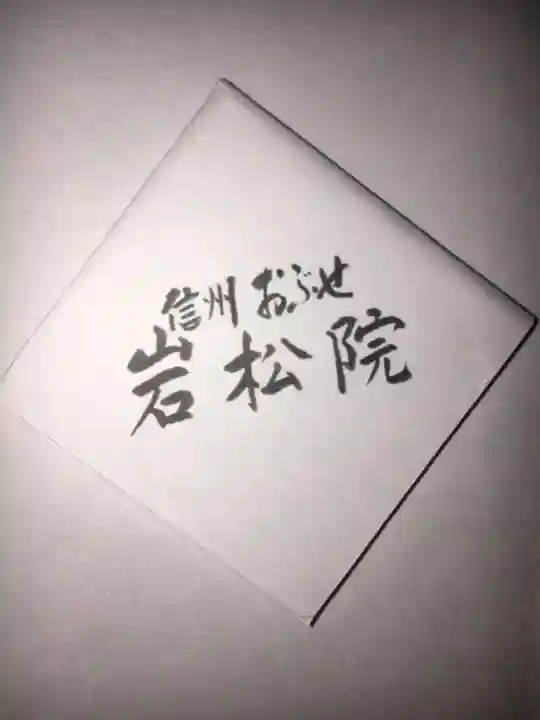 信州 おぶせ
岩松院